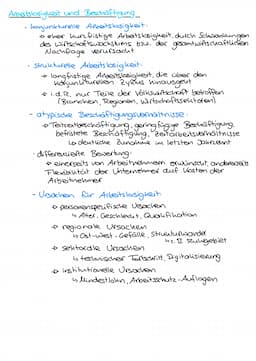 Arbeitslosigkeit und Beschäftigung
- konjunkturelle Arbeitslosigkeit:
→ eher kurzfristige Arbeitslosigkeit durch Schwankungen
des Wirtschaftswachstums bzw. der gesamtwirtschaftlichen
Nachfrage verursacht
- strukturelle Arbeitslosigkeit:
→ langfristige Arbeitslosigkeit, die über den
konjunkturellen Zyklus hinausgeht
→ i.d.R. nur Teile der Volkswirtschaft betroffen
(Branchen, Regionen, Wirtschaftssektoren)
- atypische Beschäftigungsverhältnisse:
→ Teilzeitbeschäftigung, geringfügige Beschäftigung,
befristete Beschäftigung, Zeitarbeitsverhältnisse
↳ deutliche Zunahme im letzten Jahrzehnt
- differenzierte Bewertung:
→ einerseits von Arbeitnehmern erwünscht, andererseits
Flexibilität der Unternehmer auf Kosten der
Arbeitnehmer
- Ursachen für Arbeitslosigkeit
→ personenspezifische Ursachen
↳ Alter, Geschlecht, Qualifikation
→ regionale Ursachen
↳ Ost-West-Gefälle, Strukturwandel
↳ z.B. Ruhrgebiet
→ sektorale Ursachen
↳ technischer Fortschritt, Digitalisierung
→ institutionelle Ursachen
↳ Mindestlohn, Arbeitsschutz-Auflagen